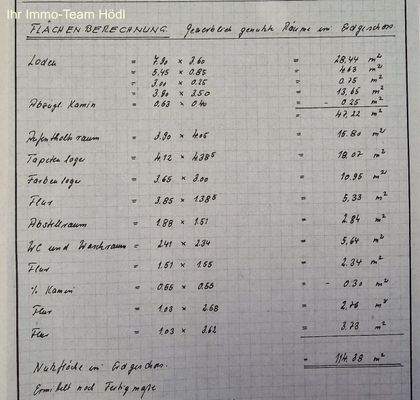 Ihr Immo-Team Hödl
FLÄCHENBERECHNUNG. Gewerblich genutzte Räume im Erdgeschoss.
Laden = 7.90 × 3.60 = 28.44 m²
= 5.45 × 0.85 = 4.63 m²
= 3.00 × 0.25 = 0.75 m²
= 3.90 × 3.50 = 13.65 m²
Abzügl. Kamin = 0.63 × 0.40 = - 0.25 m²
= 47.22 m²
Aufenthaltsraum = 3.90 × 4.05 = 15.80 m²
Tapetenlager = 4.12 × 4.38⁵ = 18.07 m²
Farbenlager = 3.65 × 3.00 = 10.95 m²
Flur = 3.85 × 1.38⁵ = 5.33 m²
Abstellraum = 1.88 × 1.51 = 2.84 m²
WC und Waschraum = 2.41 × 2.34 = 5.64 m²
Flur = 1.51 × 1.55 = 2.34 m²
% Kamin = 0.55 × 0.55 = - 0.30 m²
Flur = 1.03 × 2.68 = 2.76 m²
Flur = 1.03 × 3.62 = 3.73 m²
Nutzfläche im Erdgeschoss. = 114.38 m²
Ermittelt nach Fertigmaße